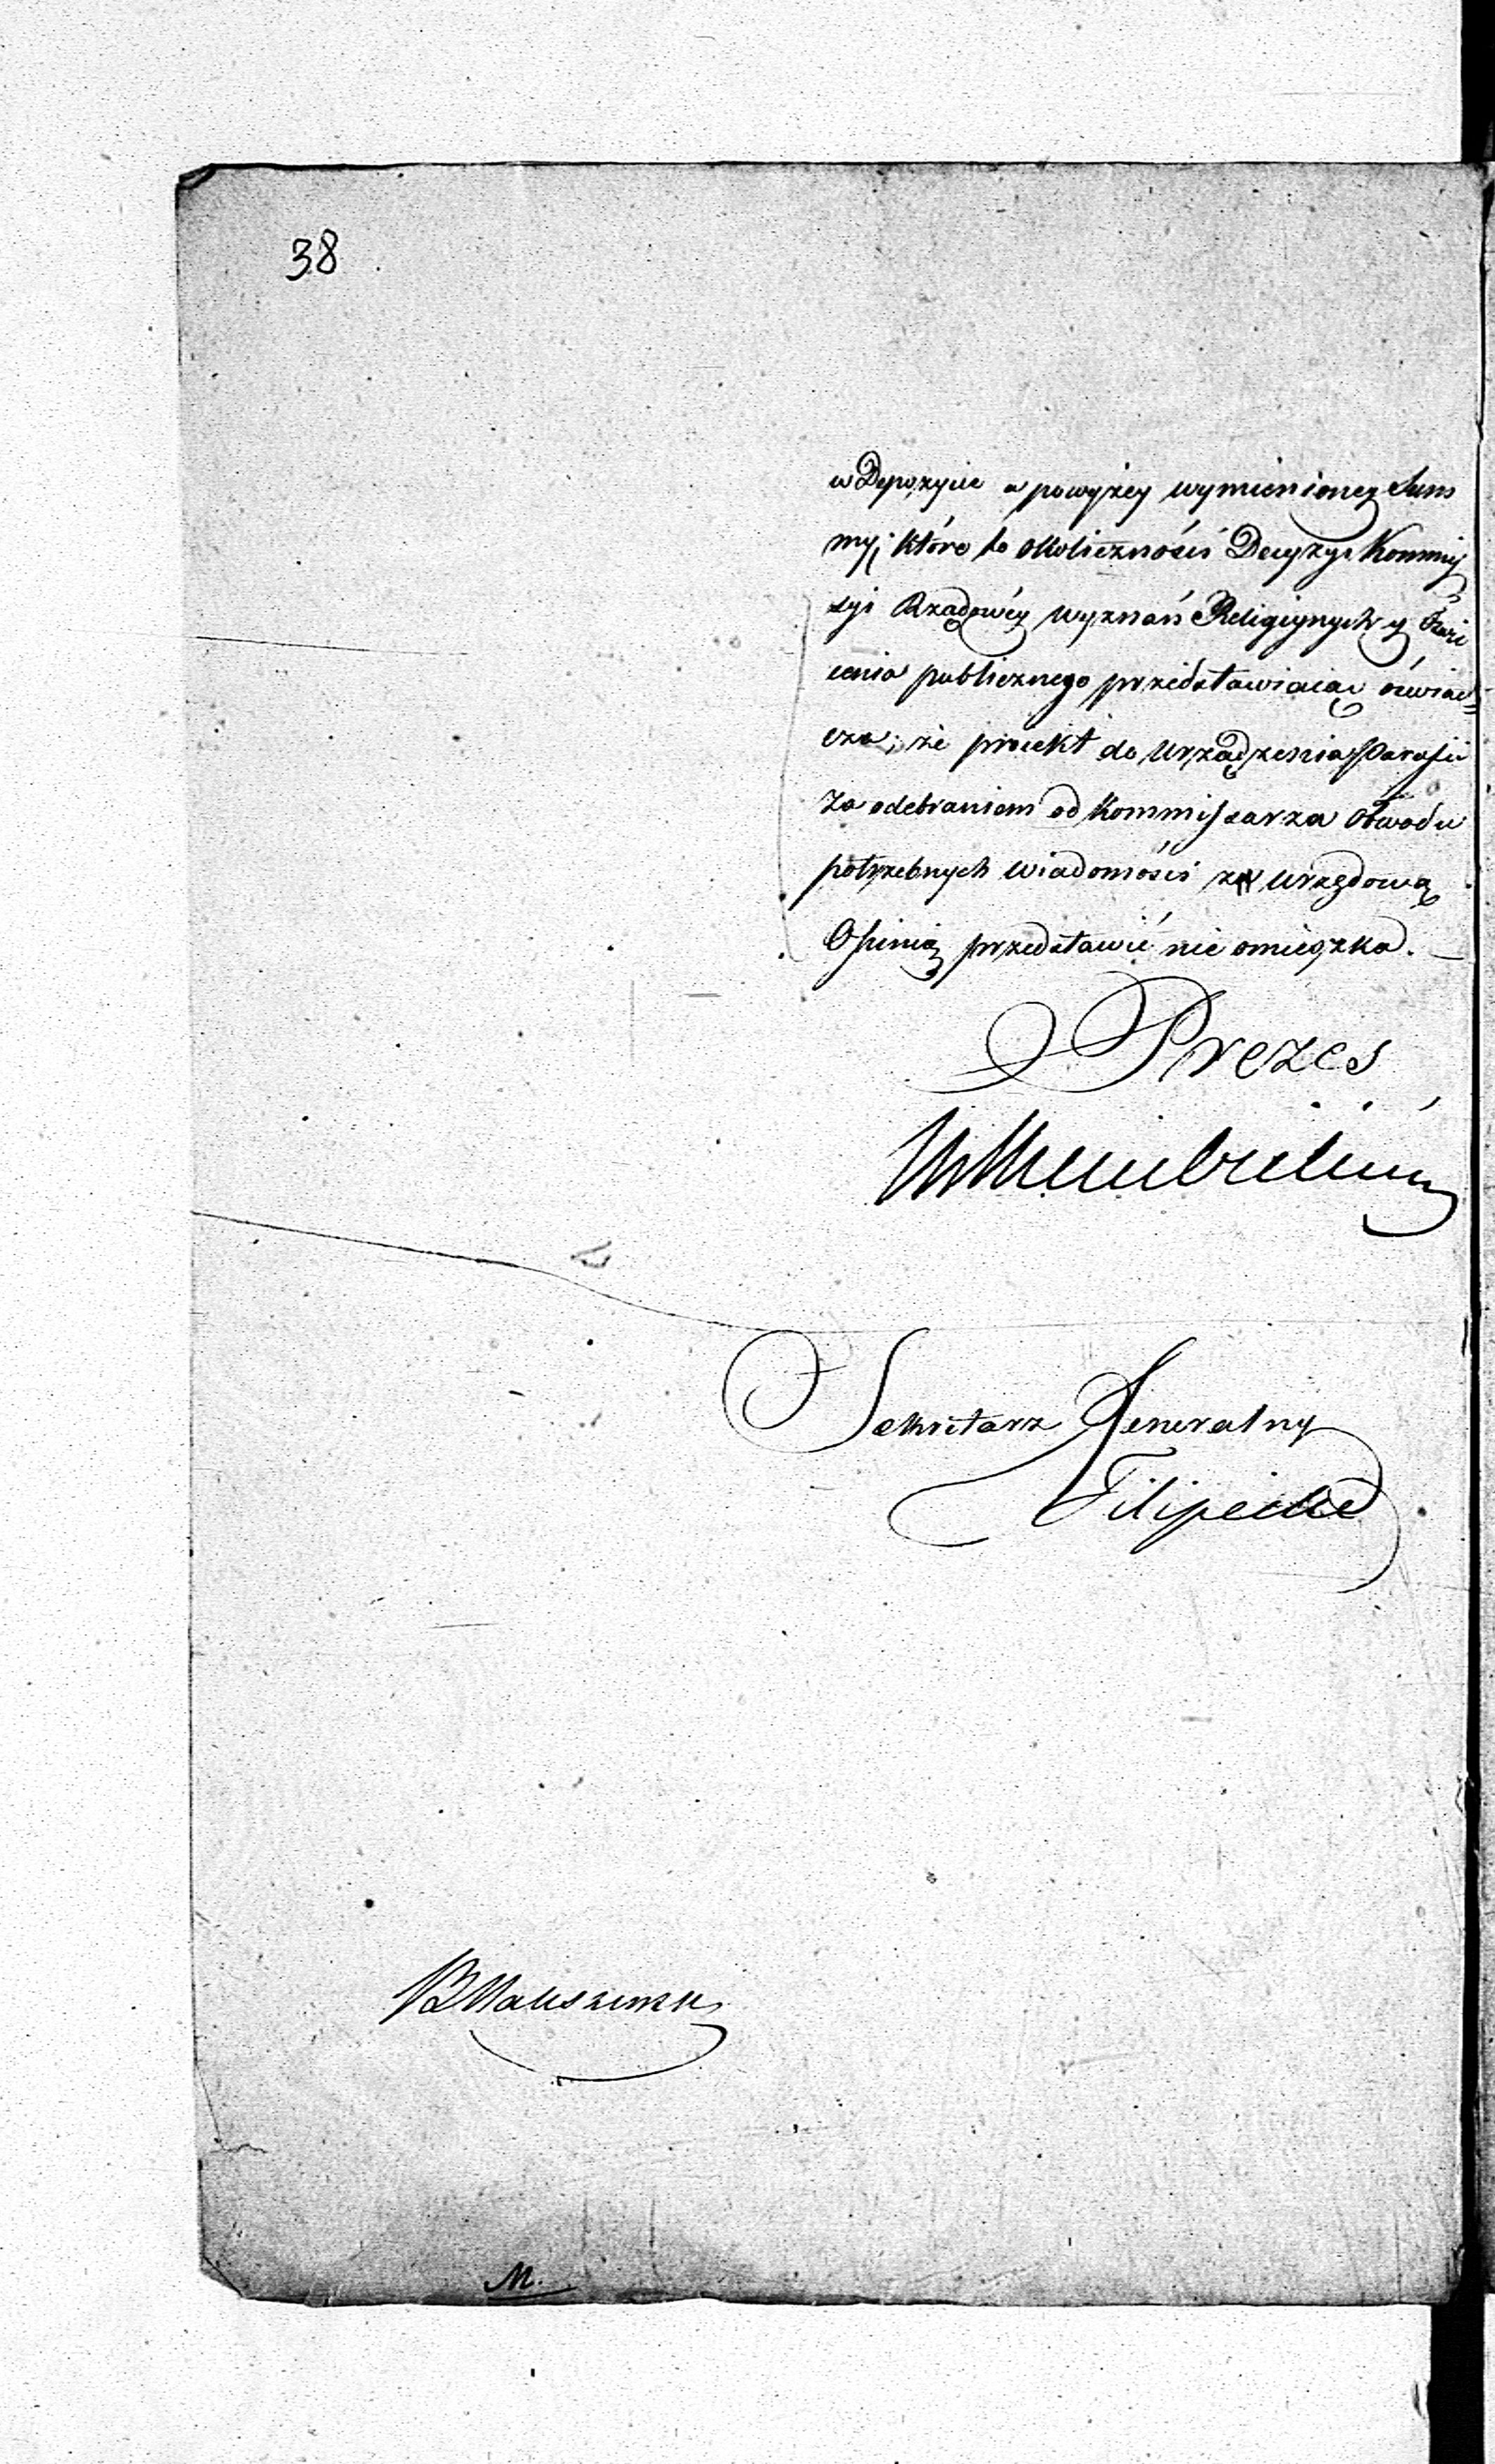 38
w Depozycie a powyżey wymienioney Sum
my; które to okoliczności Decyzyi Kommis
syi Rządowéy wyznań Religiynych y Oświ
cenia publicznego przedstawiaiąc oświad=
cza; że proiekt do urządzenia Parafii
za odebraniem od Kommissarza Obwodu
potrzebnych wiadomości z urzędową
Opinią przedstawić nie omieszka. —
Prezes
Sekretarz Generalny
Filipecki
M.